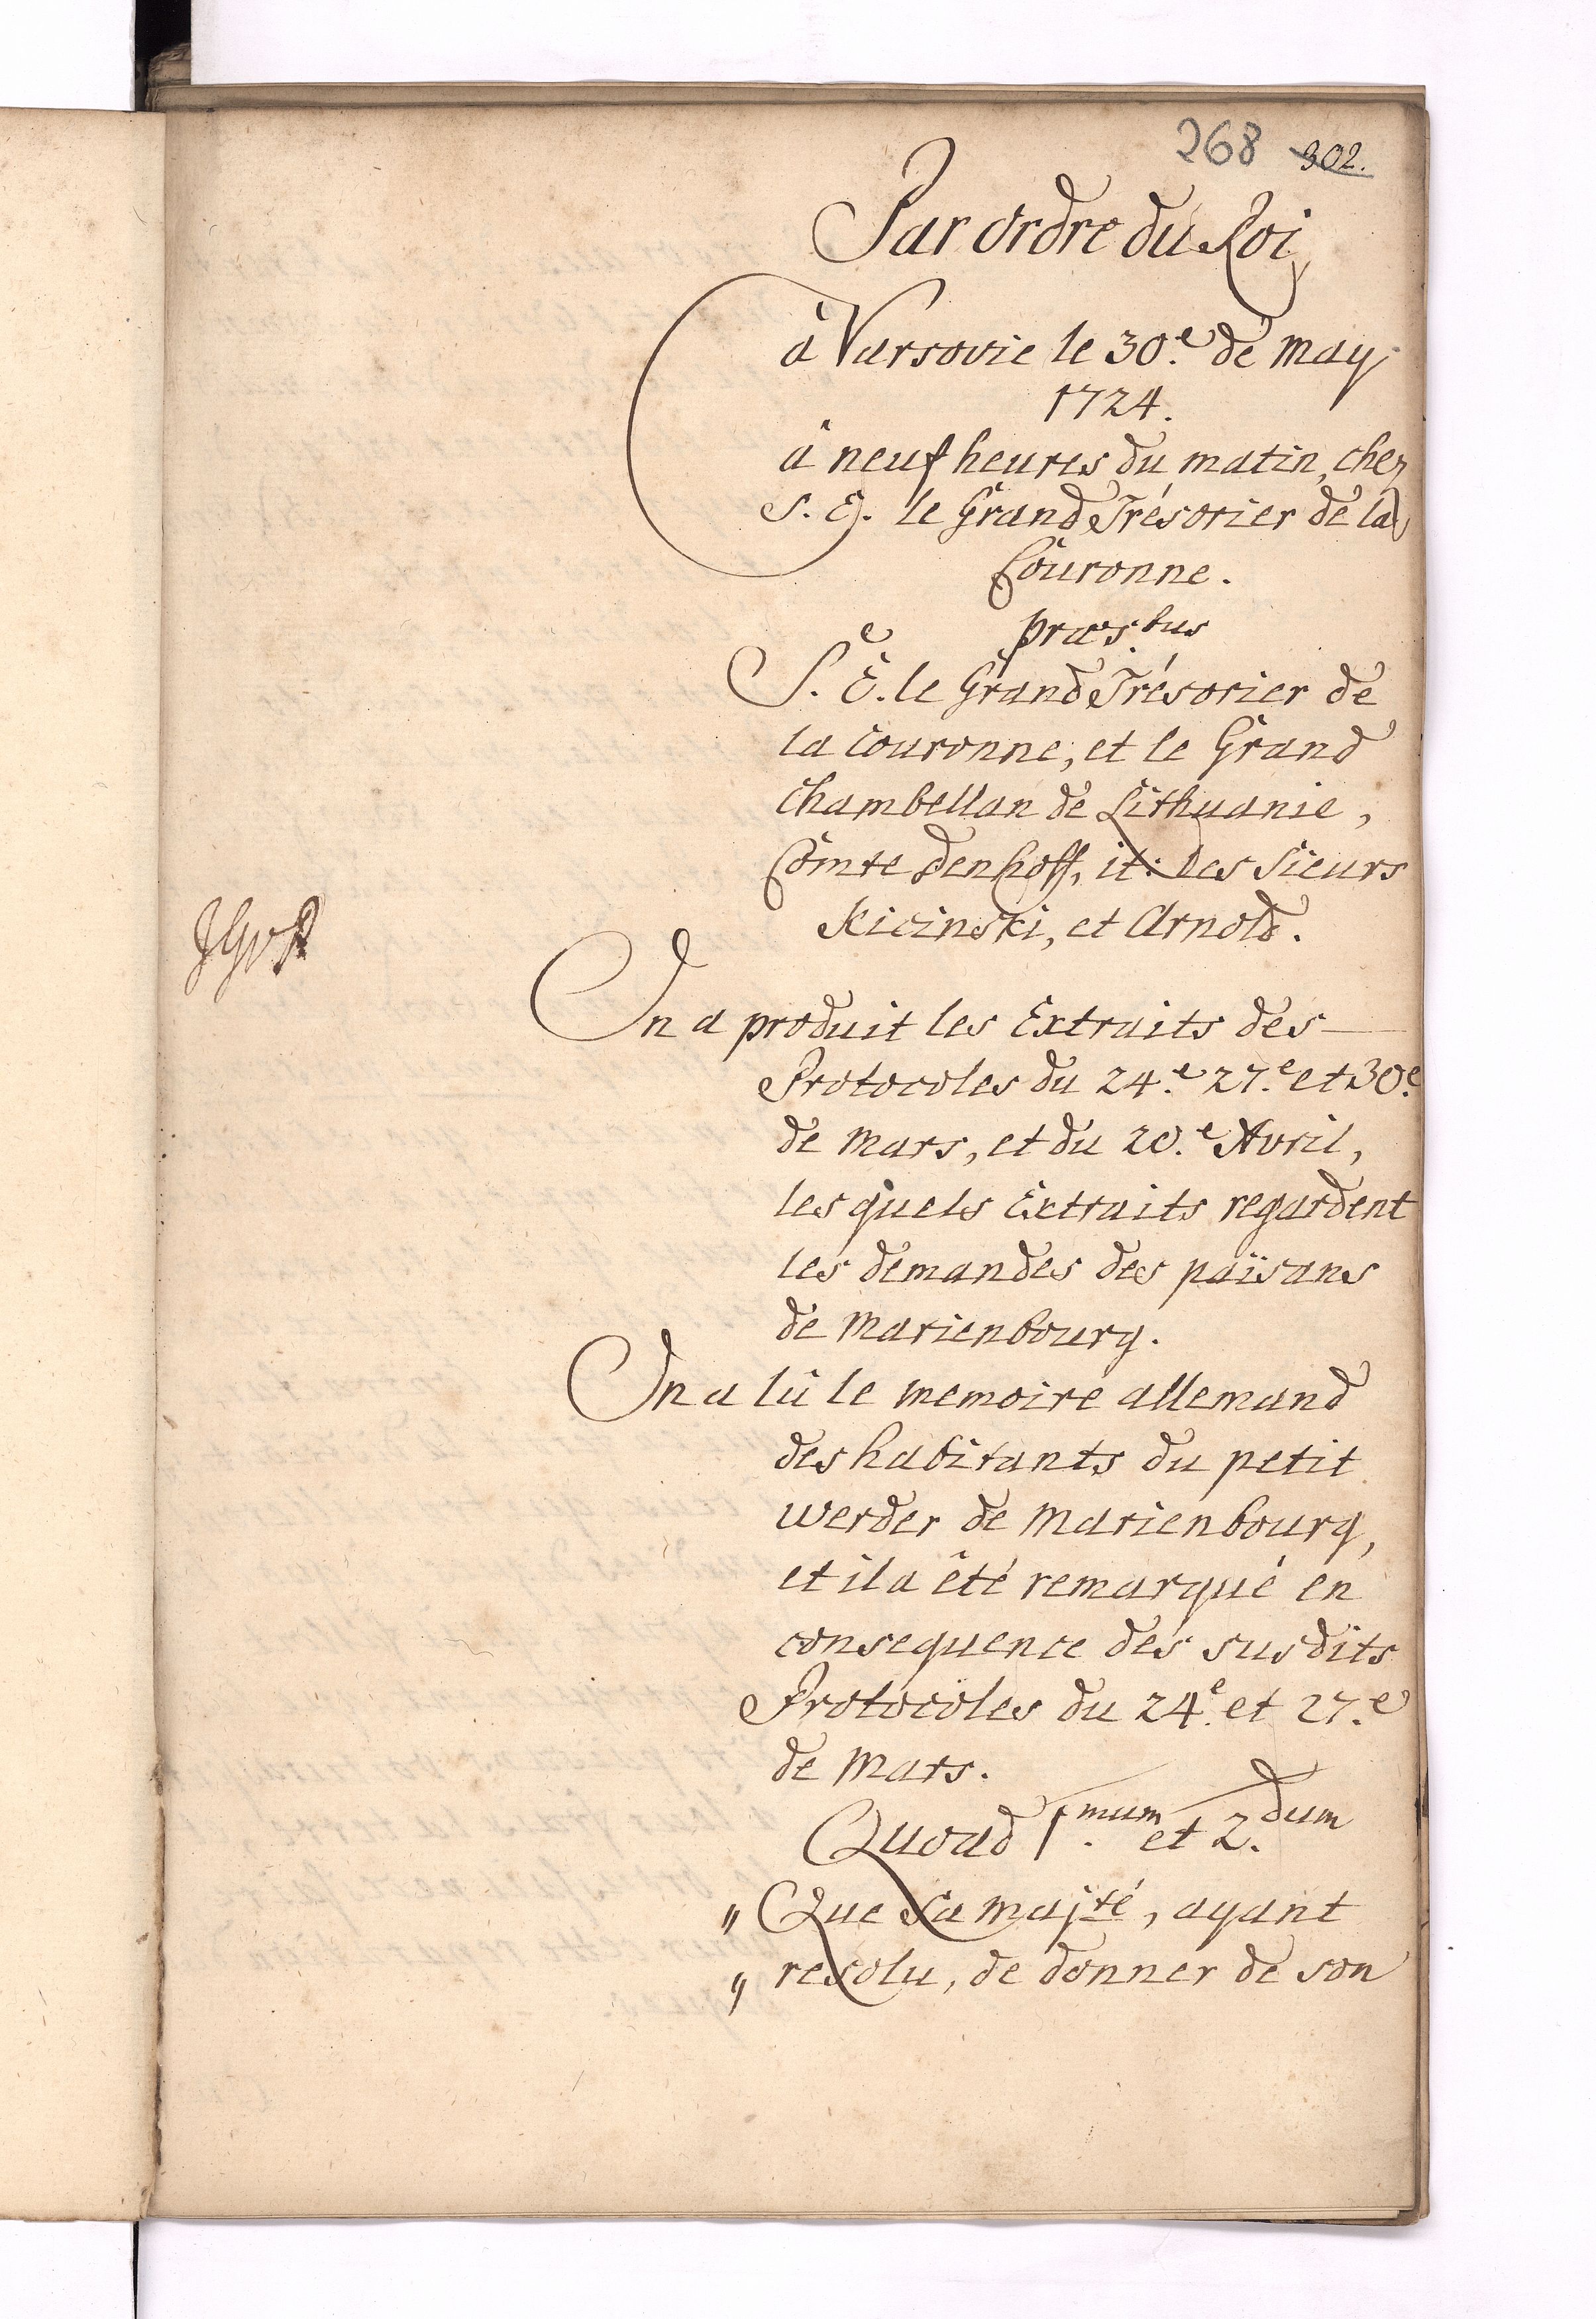 268 302.
Par Ordre du Roi
à Varsovie le 30.e de may
1724.
à neuf heures du matin, chez
S. E. le Grand Trésorier de la
Couronne.
præs.bus
S. E. le Grand Trésorier de
la Couronne, et le Grand
Chambellan de Lithuanie,
Comte Denhoff, it: Les Sieurs
Kicinski, et Arnold.
On a produit les Extraits des
Protocoles du 24.e 27.e et 30.e
de Mars, et du 20.e Avril,
les quels Extraits regardent
les demandes des païsans
de Marienbourg.
On a lû le memoire allemand
des habitants du petit
werder de Marienbourg,
et il a êté remarqué en
consequence des susdits
Protocoles du 24.e et 27.e
de Mars.
Quoad 1.mum et 2.dum
" Que Sa Majté, ayant
" resolu, de donner de son